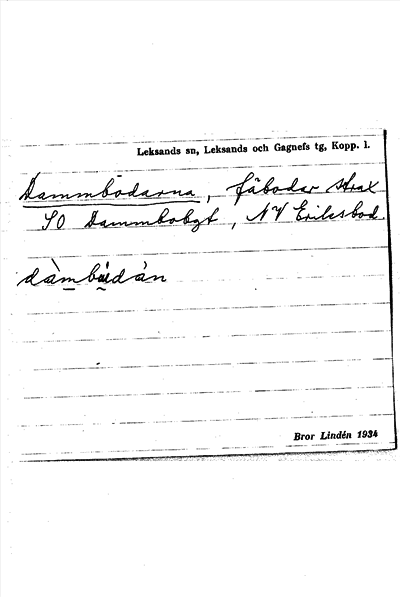 Leksands sn, Leksands och Gagnefs tg, Kopp. l.
Dammbodarna, fäbodar strax
SO Dammbobgt, NV Eriksbod.
dàmbu̇dȧn
Bror Lindén 1934